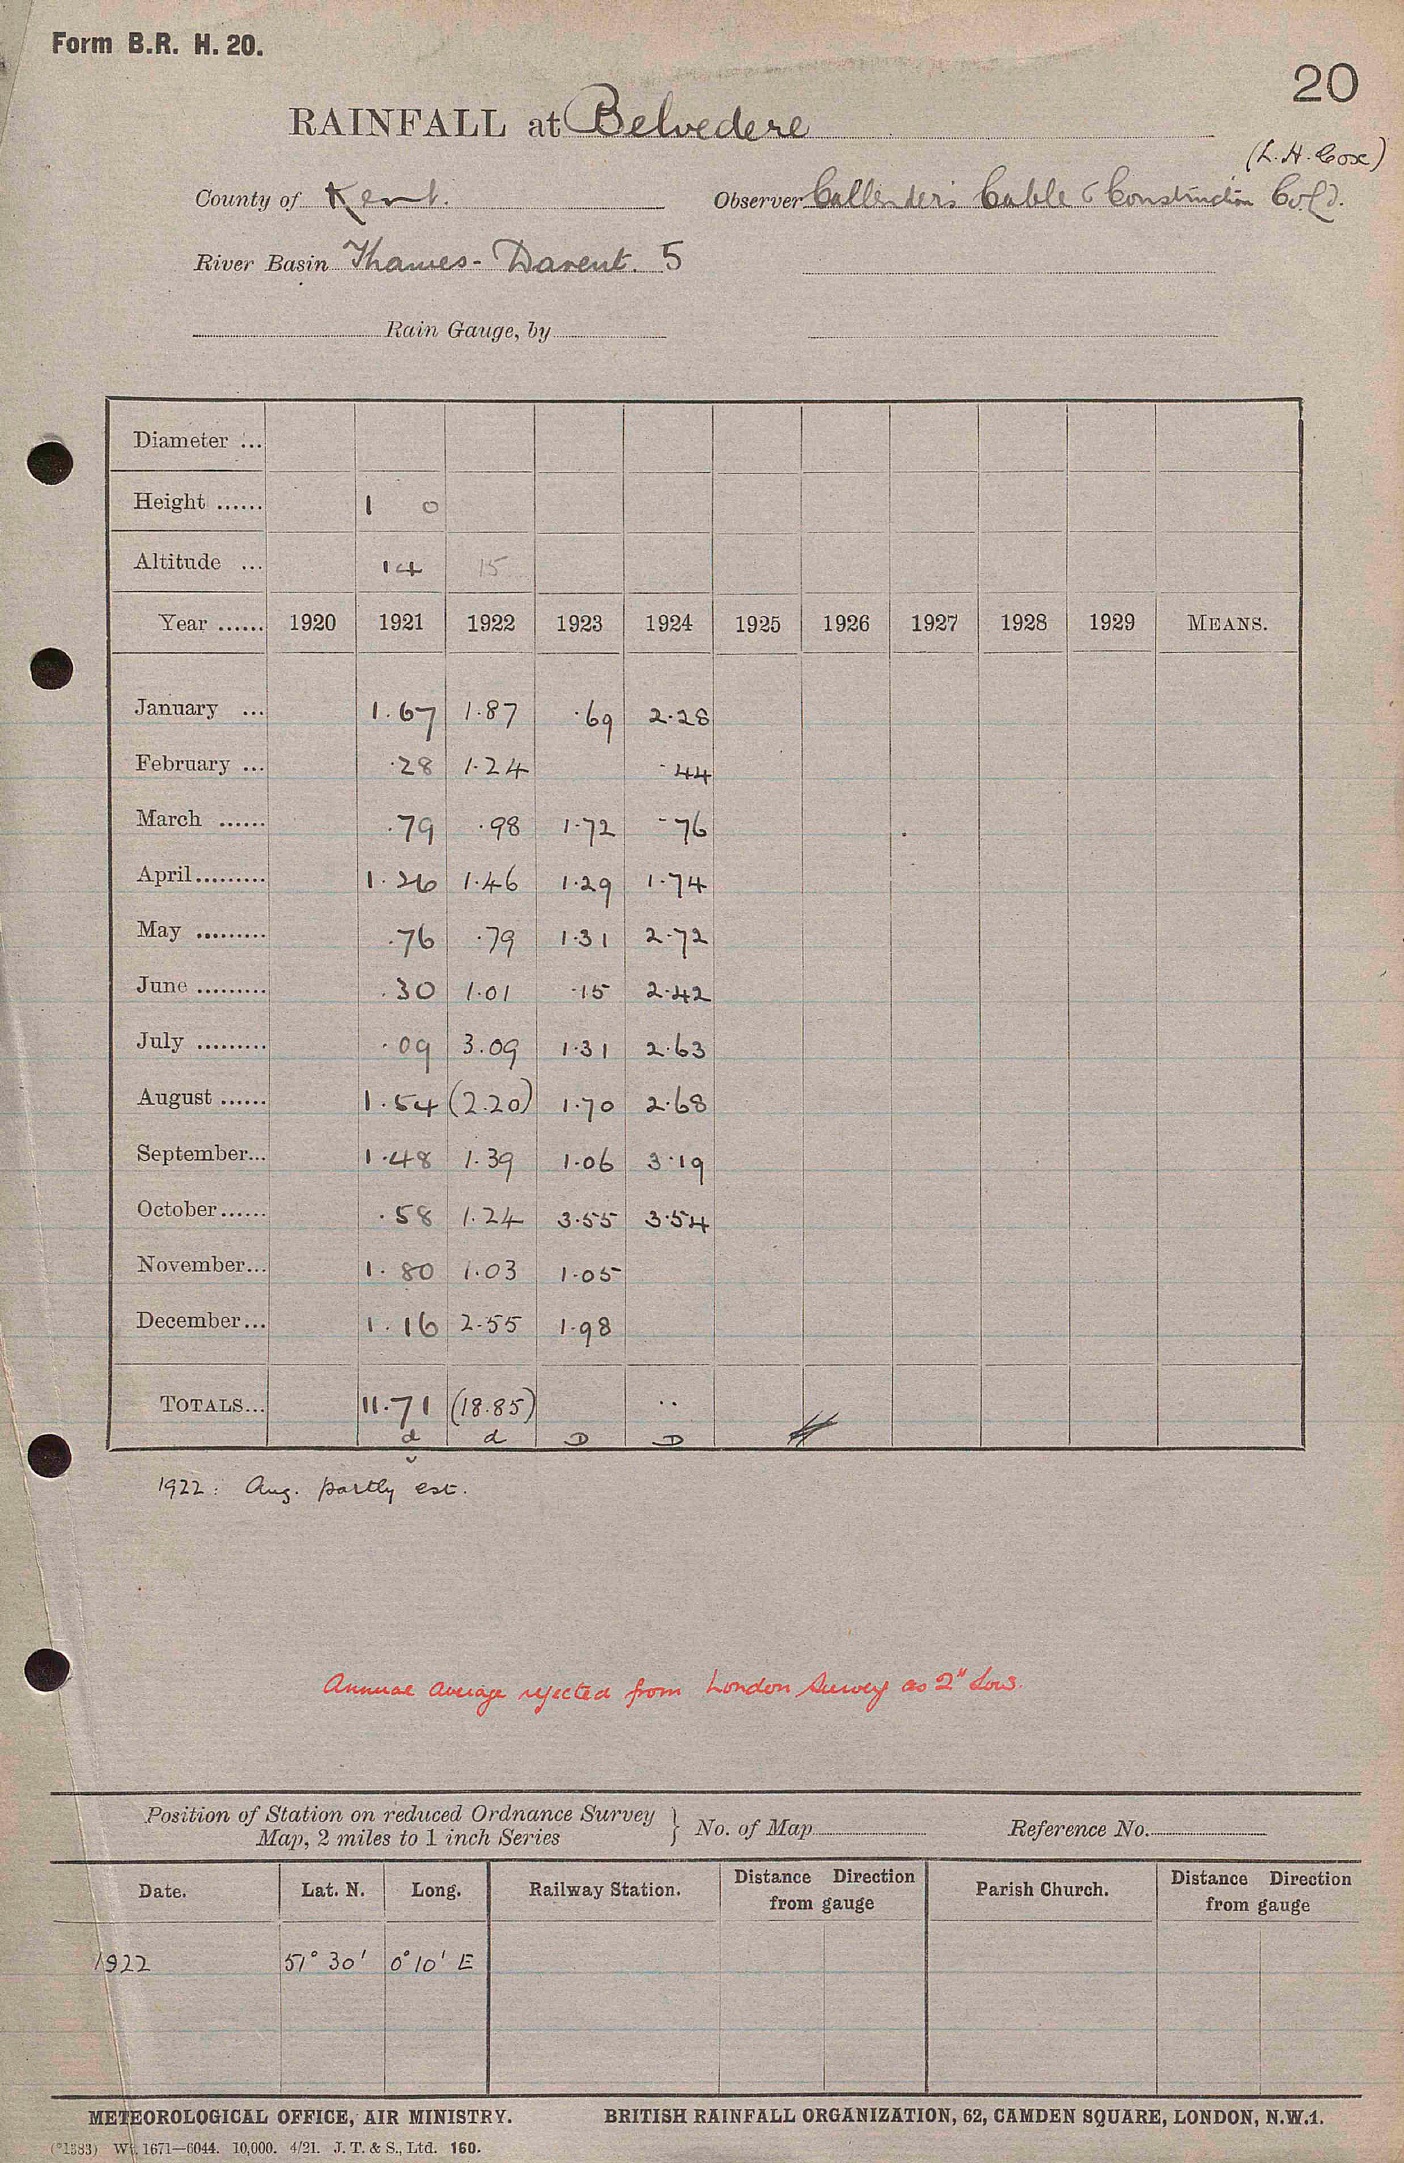 Form B.R. H. 20.
20
RAINFALL at Belvedere
(L. H. Cox)
County of Kent. Observer Callender's Cable & Construction Co. Ld.
River Basin Thames - Darent. 5
Rain Gauge, by
Diameter ...
Height ...... 1 0
Altitude ... 14 15
Year ...... 1920 1921 1922 1923 1924 1925 1926 1927 1928 1929 MEANS.
January ... 1.67 1.87 .69 2.28
February ... .28 1.24 .44
March ...... .79 .98 1.72 .76
April......... 1.26 1.46 1.29 1.74
May ......... .76 .79 1.31 2.72
June ......... .30 1.01 .15 2.42
July ......... .09 3.09 1.31 2.63
August ...... 1.54 (2.20) 1.70 2.68
September... 1.48 1.39 1.06 3.19
October...... .58 1.24 3.55 3.54
November... 1.80 1.03 1.05
December... 1.16 2.55 1.98
TOTALS... 11.71 (18.85) ..
d d D D
1922: Aug. partly est.
Annual average rejected from London Survey as 2" low.
Position of Station on reduced Ordnance Survey
Map, 2 miles to 1 inch Series } No. of Map Reference No.
Date. Lat. N. Long. Railway Station. Distance Direction from gauge Parish Church. Distance Direction from gauge
1922 51° 30' 0° 10' E
METEOROLOGICAL OFFICE, AIR MINISTRY. BRITISH RAINFALL ORGANIZATION, 62, CAMDEN SQUARE, LONDON, N.W.1.
(*1383) Wt. 1671—6044. 10,000. 4/21. J. T. & S., Ltd. 160.